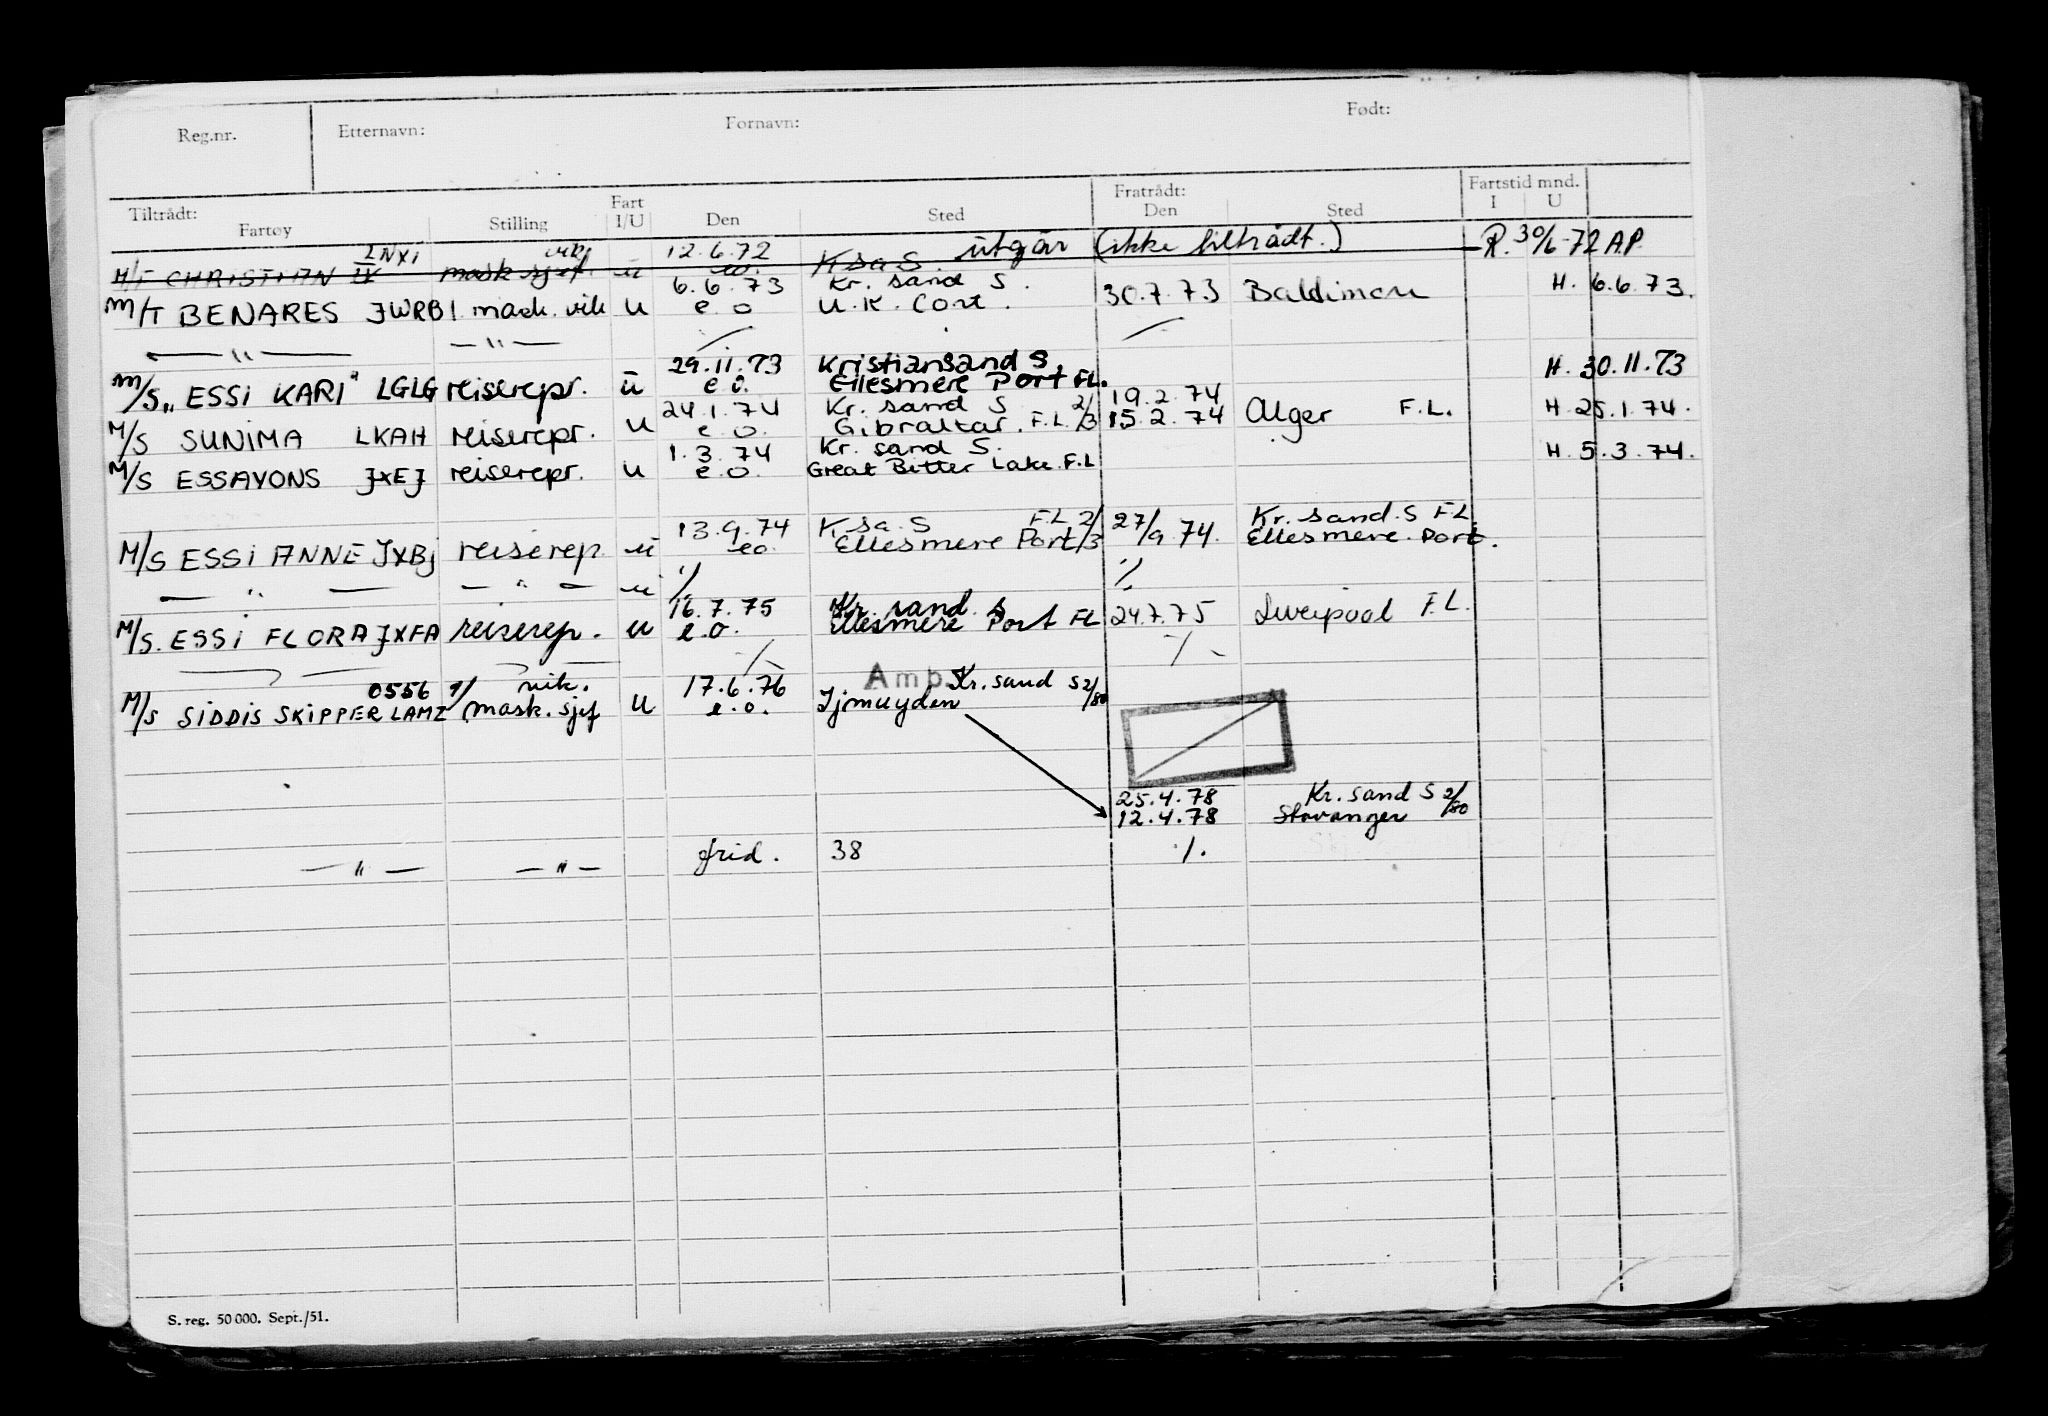 Reg.nr. Etternavn: Fornavn: Født:
Tiltrådt: Fart Fratrådt: Fartstid mnd.
Fartøy Stilling I/U Den Sted Den Sted I U
LNXI vik. 12.6.72 utgår (ikke tiltrådt.) R. 30/6-72 AP.
M/T CHRISTIAN IV mask sjef. u eo. Ksa S
6.6.73 Kr. sand S. H. 6.6.73.
M/T BENARES JWRB 1. mask. vik u e.o U.K. Cont. 30.7.73 Baltimore
— " — — " —
29.11.73 Kristiansand S. H. 30.11.73
M/S „ESSI KARI" LGLG reiserepr. u e.o. Ellesmere Port FL. 19.2.74
24.1.74 Kr. sand S 2/3 H. 25.1.74.
M/S SUNIMA LKAH reiserepr. u e.o. Gibraltar. F.L. 15.2.74 Alger F.L.
1.3.74 Kr. sand S. H. 5.3.74.
M/S ESSAYONS JXEJ reiserepr. u e.o. Great Bitter Lake F.L
13.9.74 K sa. S F.L 2/3 27/9 74. Kr. sand. S F.L.
M/S ESSI ANNE JXBJ reiserep u eo. Ellesmere Port Ellesmere Port.
— " — — " — u ./. ./.
16.7.75 Kr. sand. S
M/S. ESSI FLORA JXFA reiserep. u e.o. Ellesmere Port FL 24.7.75 Liverpool F.L.
./. ./.
0556 vik. 17.6.76 Amb. Kr. sand S 2/80
M/S SIDDIS SKIPPER LAMZ mask. sjef u e.o. Ijmuyden
25.4.78 Kr. sand S 2/80
12.4.78 Stavanger
— " — — " — frid. 38 ./.
S. reg. 50 000. Sept./51.